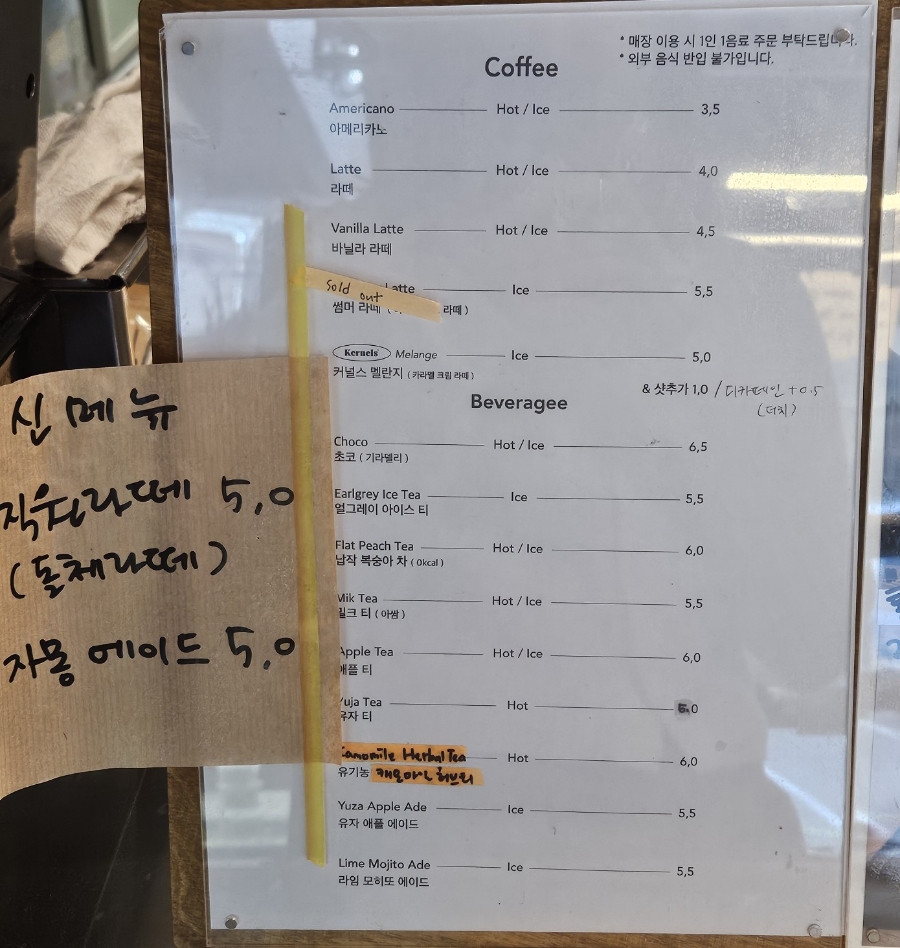 * 매장 이용 시 1인 1음료 주문 부탁드립니다.
* 외부 음식 반입 불가입니다.
Coffee
Americano Hot / Ice 3,5
아메리카노
Latte Hot / Ice 4,0
라떼
Vanilla Latte Hot / Ice 4,5
바닐라 라떼
Sold out
Ice 5,5
썸머 라떼 라떼 )
Kernels Melange Ice 5,0
커널스 멜란지 ( 카라멜 크림 라떼 )
& 샷추가 1,0 / 디카페인 +0.5
(더치)
Beveragee
Choco Hot / Ice 6,5
초코 ( 기라델리 )
Earlgrey Ice Tea Ice 5,5
얼그레이 아이스 티
Flat Peach Tea Hot / Ice 6,0
납작 복숭아 차 ( 0kcal )
Mik Tea Hot / Ice 5,5
밀크 티 ( 아쌈 )
Apple Tea Hot / Ice 6,0
애플 티
Yuja Tea Hot 6.0
유자 티
Camomile Herbal Tea Hot 6,0
유기농 캐모마일 허브티
Yuza Apple Ade Ice 5,5
유자 애플 에이드
Lime Mojito Ade Ice 5,5
라임 모히또 에이드
신메뉴
직원라떼 5,0
(돌체라떼)
자몽 에이드 5,0